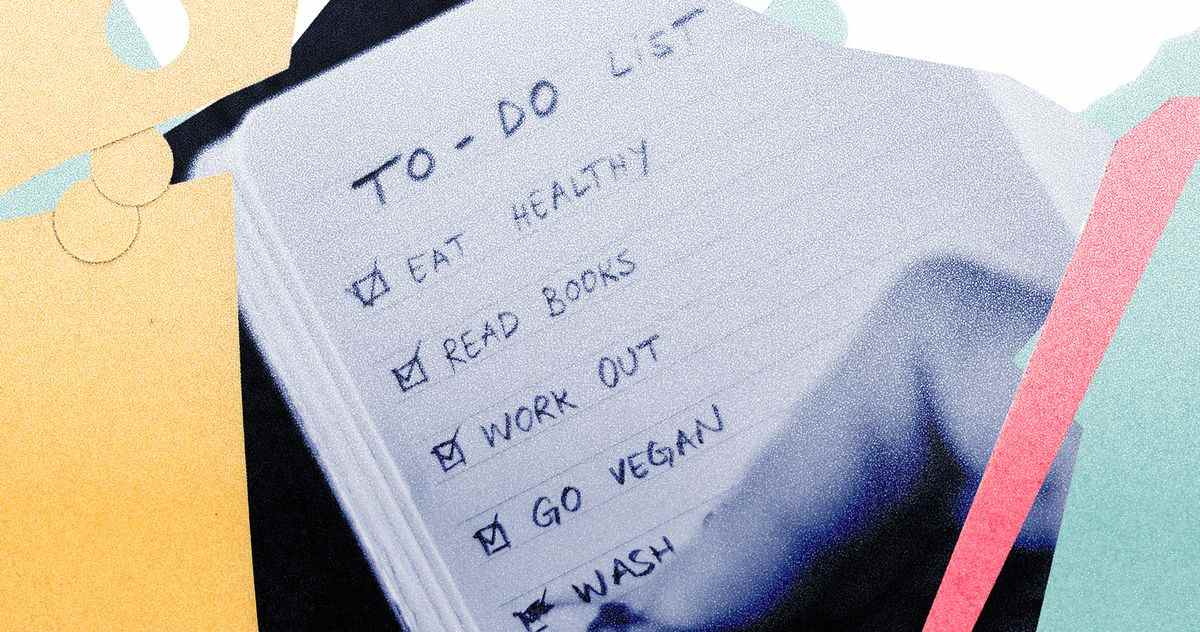 TO-DO LIST
EAT HEALTHY
READ BOOKS
WORK OUT
GO VEGAN
WASH